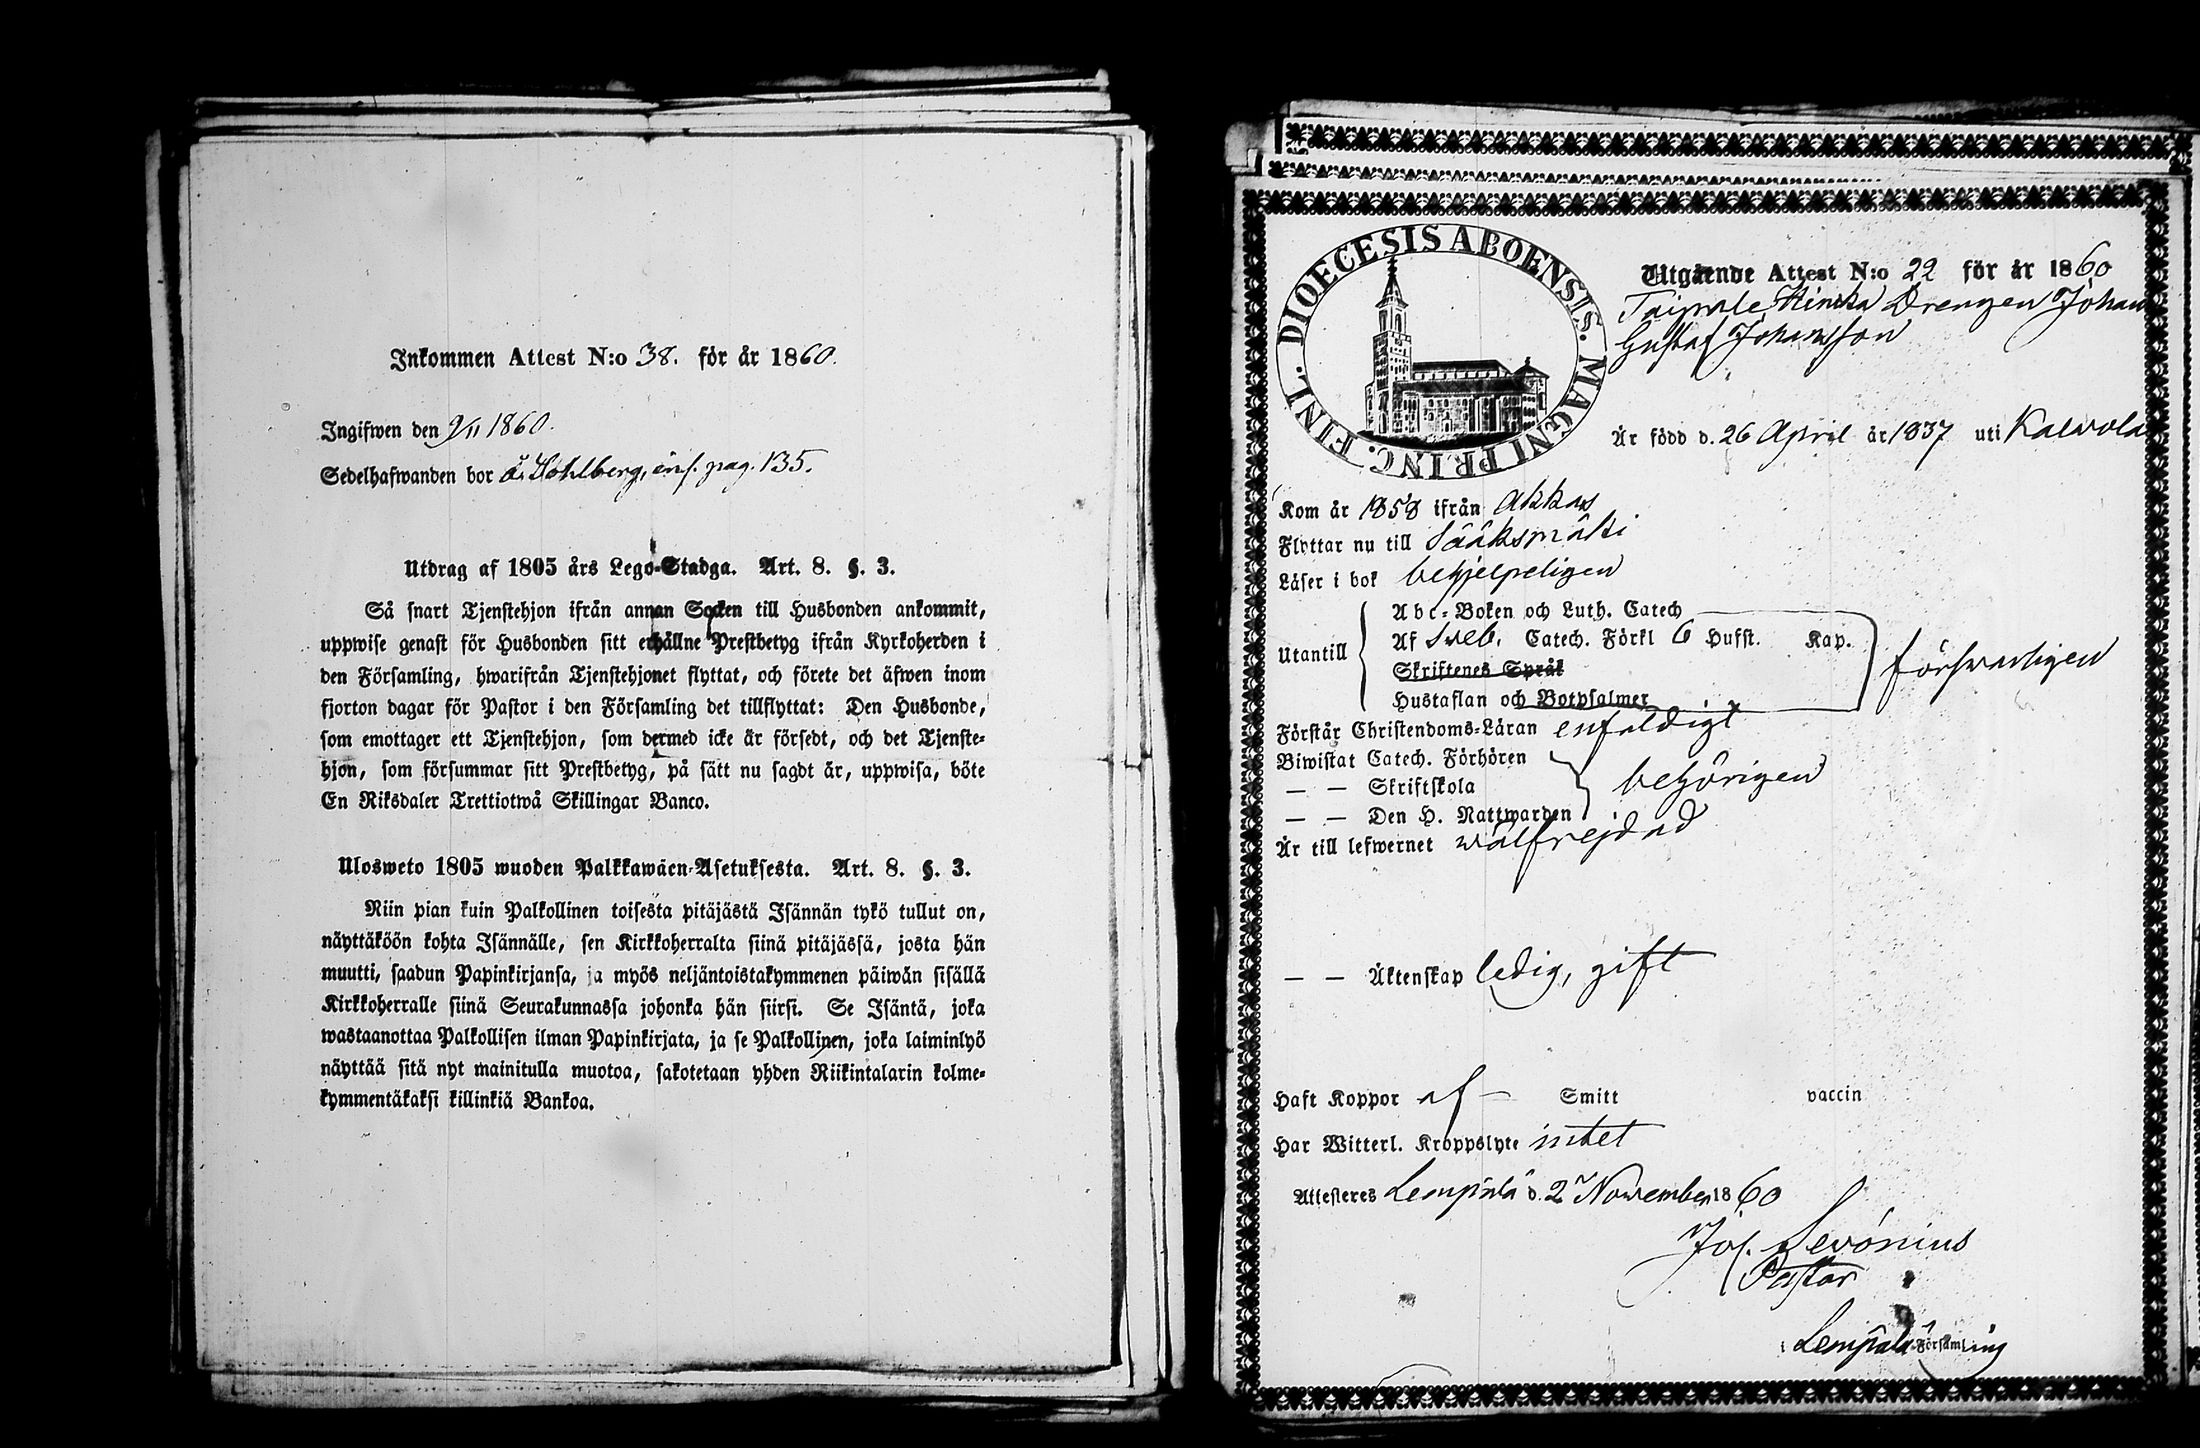 Inkommen Attest N:o 38. för år 1860.
Ingifwen den 9/11 1860.
Sedelhafwanden bor å Hohlberg, inf. pag. 135.
Utdrag af 1805 års Lego-Stadga. Art. 8. §. 3.
Så snart Tjenstehjon ifrån annan Socken till Husbonden ankommit,
uppwise genast för Husbonden sitt erhållne Prestbetyg ifrån Kyrkoherden i
den Församling, hwarifrån Tjenstehjonet flyttat, och förete det äfwen inom
fjorton dagar för Pastor i den Församling det tillflyttat: Den Husbonde,
som emottager ett Tjenstehjon, som dermed icke är försedt, och det Tjenste-
hjon, som försummar sitt Prestbetyg, på sätt nu sagdt är, uppwisa, böte
En Riksdaler Trettiotwå Skillingar Banco.
Ulosweto 1805 wuoden Palkkawäen-Asetuksesta. Art. 8. §. 3.
Niin pian kuin Palkollinen toisesta pitäjästä Isännän tykö tullut on,
näyttäköön kohta Isännälle, sen Kirkkoherralta siinä pitäjässä, josta hän
muutti, saadun Papinkirjansa, ja myös neljäntoistakymmenen päiwän sisällä
Kirkkoherralle siinä Seurakunnassa johonka hän siirsi. Se Isäntä, joka
wastaanottaa Palkollisen ilman Papinkirjata, ja se Palkollinen, joka laiminlyö
näyttää sitä nyt mainitulla muotoa, sakotetaan yhden Riikintalarin kolme-
kymmentäkaksi killinkiä Bankoa.
DIOECESIS ABOENSIS. MAGNI PRINC. FINL.
Utgående Attest N:o 22 för år 1860
Taipale Hinska Drengen Johan
Gustaf Johansson
Är född d. 26 April år 1837 uti Kalvola
Kom år 1858 ifrån Akkas
Flyttar nu till Sääksmäki
Läser i bok behjelpeligen
Utantill
Abc-Boken och Luth. Catech
Af Sveb. Catech. Förkl 6 Hufst. Kap.
Skriftenes Språk
Hustaflan och Botpsalmer
försvarligen
Förstår Christendoms-Läran enfaldigt
Biwistat Catech. Förhören
— — Skriftskola
— — Den H. Nattwarden
behörigen
Är till lefwernet wälfrejdad
— — Äktenskap ledig, gift
Haft Koppor af — Smitt vaccin
Har Witterl. Kroppslyte intet
Attesteres Lempälä d. 2 November 1860
Jos. Sevónius
Pastor
i Lempälä Församling